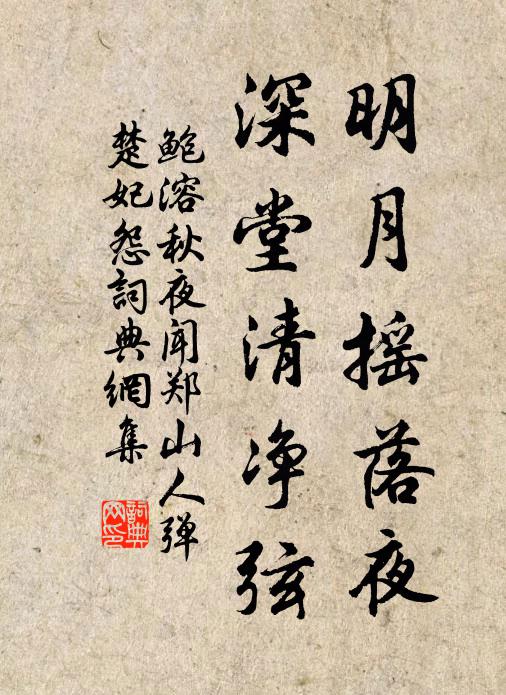 明月摇落夜
深堂清净弦
鲍溶秋夜闻郑山人弹
楚妃怨詞典網集
詞典
网印